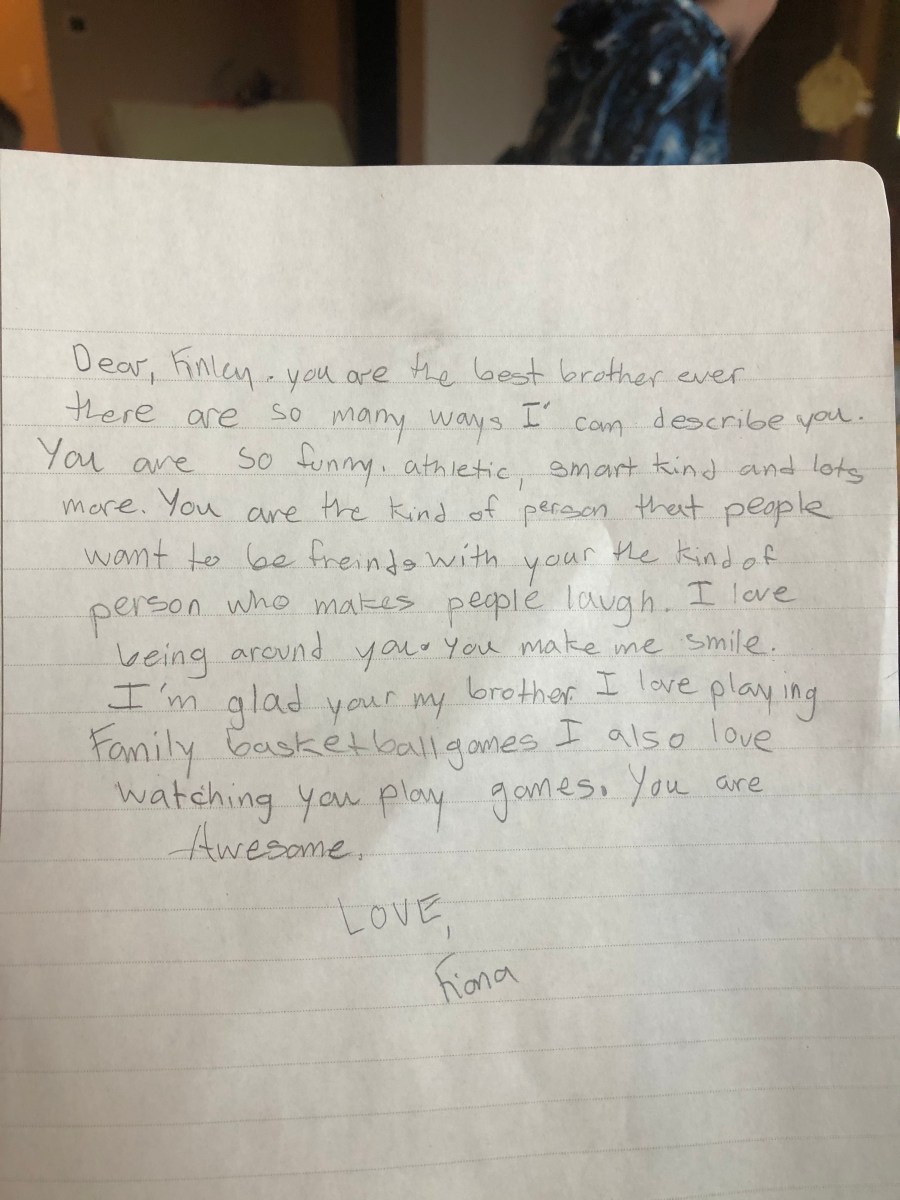 Dear, Finley. you are the best brother ever
there are so many ways I' can describe you.
You are so funny. athletic, smart kind and lots
more. You are the kind of person that people
want to be freinds with your the kind of
person who makes people laugh. I love
being around you. You make me smile.
I'm glad your my brother. I love playing
Family basketball games I also love
watching you play games. You are
Awesome.
LOVE,
Fiona